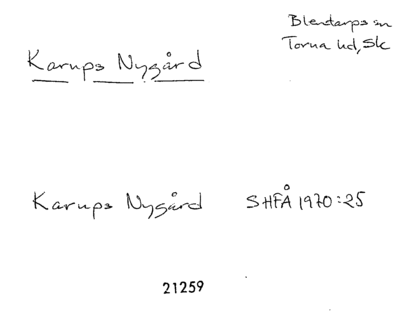 Blentarps sn
Torna hd, Sk
Karups Nygård
Karups Nygård SHFÅ 1970:25
21259